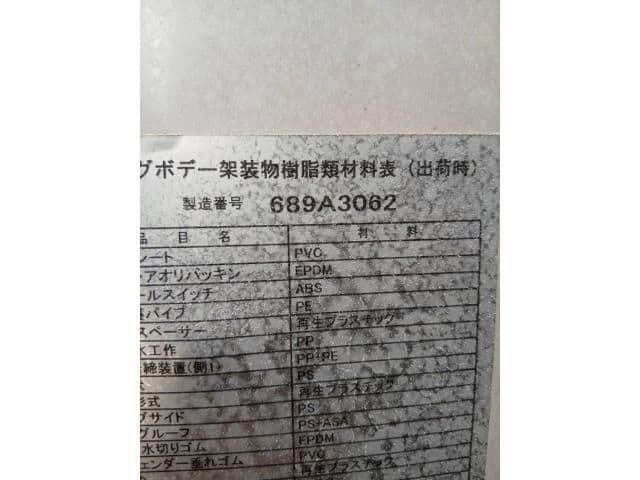 グボデー架装物樹脂類材料表(出荷時)
製造番号 689A3062
品目名 材料
シート PVC
・アオリパッキン EPDM
ールスイッチ ABS
パイプ PE
スペーサー 再生プラスチック
水工作 PP
締装置(側1) PP+PE
PS
形式 再生プラスチック
グサイド PS
グルーフ PS+ASA
水切りゴム EPDM
ェンダー垂れゴム PVC
再生プラスチック